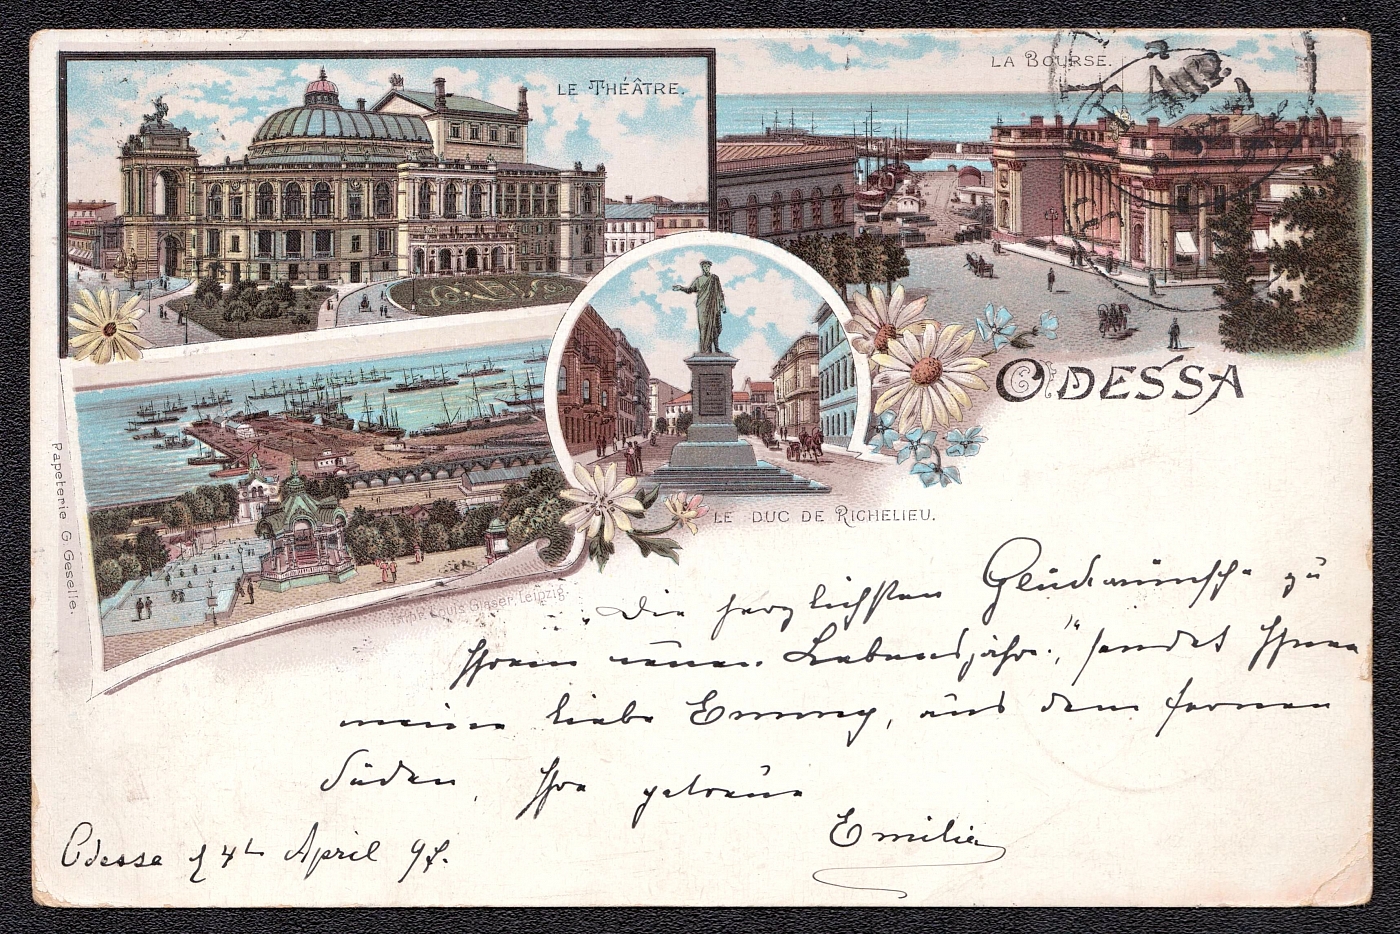 LE THÉÂTRE.
LA BOURSE.
ODESSA
LE DUC DE RICHELIEU.
Papeterie G. Geselle.
Louis Glaser, Leipzig.
Die herzlichsten Glückwünsche zu
Ihrem neuen Lebensjahre," sendet Ihnen
meine liebe Emmy, aus dem fernen
Süden, Ihre getreue
Emilie
Odessa d 4t April 97.